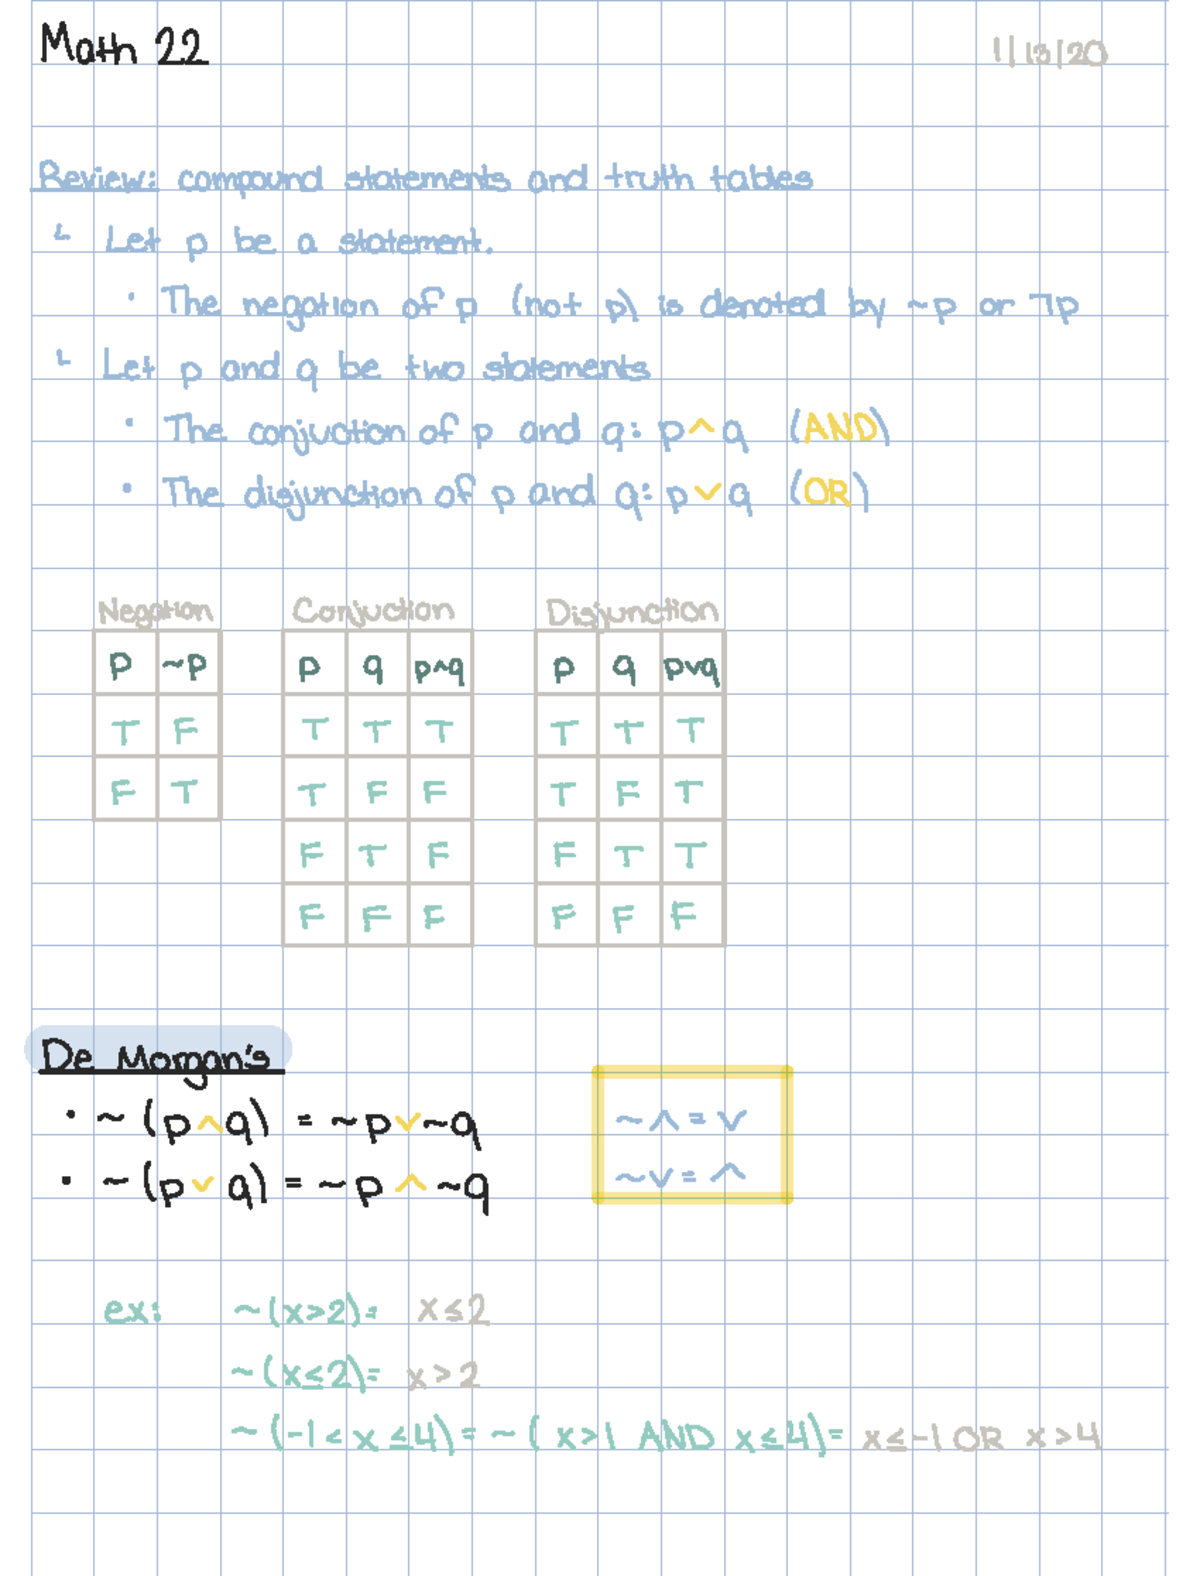 Math 22
1/13/20
Review: compound statements and truth tables
↳ Let p be a statement.
• The negation of p (not p) is denoted by ~p or ¬p
↳ Let p and q be two statements
• The conjuction of p and q: p ^ q (AND)
• The disjunction of p and q: p ∨ q (OR)
Negation Conjuction Disjunction
p ~p p q p^q p q p∨q
T F T T T T T T
F T T F F T F T
F T F F T T
F F F F F F
De Morgan's
• ~ (p ^ q) = ~p ∨ ~q
• ~ (p ∨ q) = ~p ^ ~q
~ ^ = ∨
~ ∨ = ^
ex: ~(x>2)= x≤2
~(x≤2)= x>2
~(-1< x ≤4)= ~( x>1 AND x≤4)= x≤-1 OR x>4